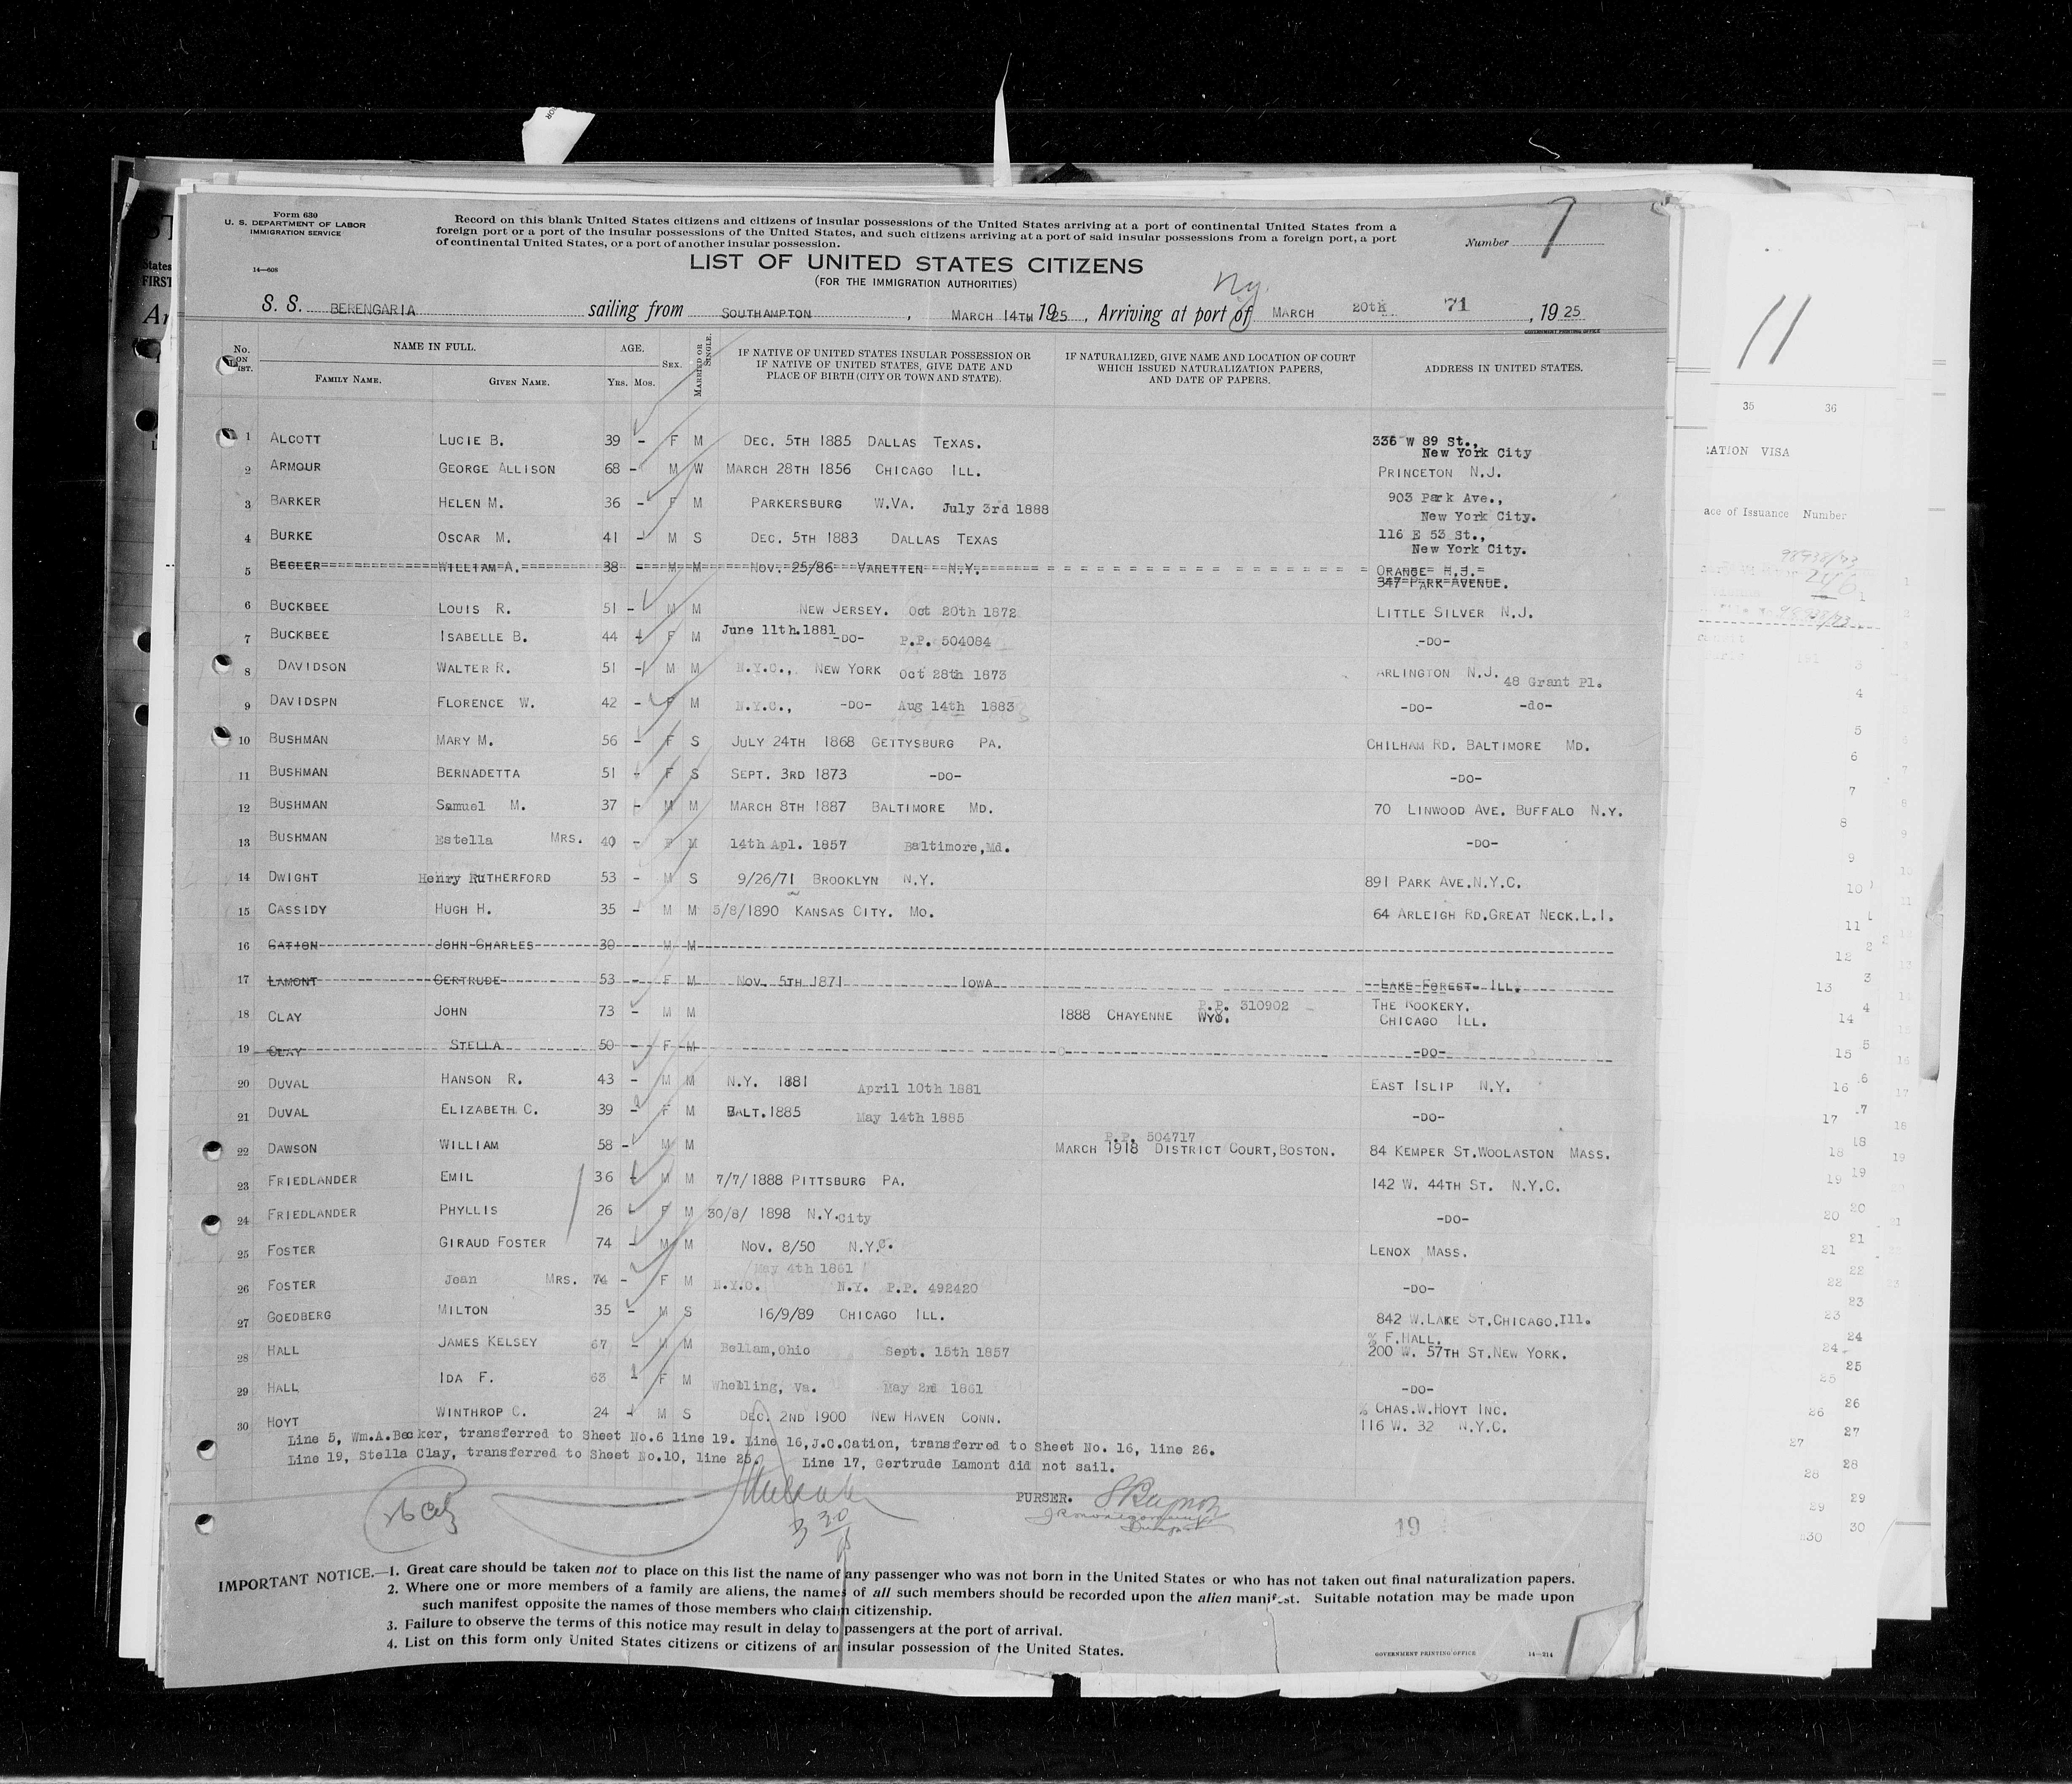 Form 630
U. S. DEPARTMENT OF LABOR
IMMIGRATION SERVICE
14—608
Record on this blank United States citizens and citizens of insular possessions of the United States arriving at a port of continental United States from a
foreign port or a port of the insular possessions of the United States, and such citizens arriving at a port of said insular possessions from a foreign port, a port
of continental United States, or a port of another insular possession.
Number 7
LIST OF UNITED STATES CITIZENS
(FOR THE IMMIGRATION AUTHORITIES)
Ny.
S. S. BERENGARIA sailing from SOUTHAMPTON, MARCH 14TH 1925, Arriving at port of MARCH 20th 71, 1925
GOVERNMENT PRINTING OFFICE
No. ON LIST. NAME IN FULL. AGE. SEX. MARRIED OR SINGLE. IF NATIVE OF UNITED STATES INSULAR POSSESSION OR IF NATIVE OF UNITED STATES, GIVE DATE AND PLACE OF BIRTH (CITY OR TOWN AND STATE). IF NATURALIZED, GIVE NAME AND LOCATION OF COURT WHICH ISSUED NATURALIZATION PAPERS, AND DATE OF PAPERS. ADDRESS IN UNITED STATES.
FAMILY NAME. GIVEN NAME. Yrs. Mos.
1 ALCOTT LUCIE B. 39 - F M DEC. 5TH 1885 DALLAS TEXAS. 336 W 89 St., New York City
2 ARMOUR GEORGE ALLISON 68 - M W MARCH 28TH 1856 CHICAGO ILL. PRINCETON N.J.
3 BARKER HELEN M. 36 - F M PARKERSBURG W.VA. July 3rd 1888 903 Park Ave., New York City.
4 BURKE OSCAR M. 41 - M S DEC. 5TH 1883 DALLAS TEXAS 116 E 53 St., New York City.
5 BECLER WILLIAM A. 38 - M M NOV. 25/86 VANETTEN N.Y. ORANGE N.J. 347 PARK AVENUE.
6 BUCKBEE LOUIS R. 51 - M M NEW JERSEY. Oct 20th 1872 LITTLE SILVER N.J.
7 BUCKBEE ISABELLE B. 44 - F M June 11th.1881 -DO- P.P. 504084 -DO-
8 DAVIDSON WALTER R. 51 - M M N.Y.C., NEW YORK Oct 28th 1873 ARLINGTON N.J. 48 Grant Pl.
9 DAVIDSPN FLORENCE W. 42 - F M N.Y.C., -DO- Aug 14th 1883 -DO- -do-
10 BUSHMAN MARY M. 56 - F S JULY 24TH 1868 GETTYSBURG PA. CHILHAM RD. BALTIMORE MD.
11 BUSHMAN BERNADETTA 51 - F S SEPT. 3RD 1873 -DO- -DO-
12 BUSHMAN Samuel M. 37 - M M MARCH 8TH 1887 BALTIMORE MD. 70 LINWOOD AVE. BUFFALO N.Y.
13 BUSHMAN Estella MRS. 40 - F M 14th Apl. 1857 Baltimore,Md. -DO-
14 DWIGHT Henry RUTHERFORD 53 - M S 9/26/71 BROOKLYN N.Y. 891 PARK AVE.N.Y.C.
15 CASSIDY HUGH H. 35 - M M 5/8/1890 KANSAS CITY. MO. 64 ARLEIGH RD.GREAT NECK.L.I.
16 CATION JOHN CHARLES 30 M M
17 LAMONT GERTRUDE 53 - F M NOV. 5TH 1871 IOWA LAKE FOREST ILL.
18 CLAY JOHN 73 - M M 1888 CHAYENNE WYO. P.P. 310902 THE ROOKERY. CHICAGO ILL.
19 CLAY STELLA 50 - F M -DO-
20 DUVAL HANSON R. 43 - M M N.Y. 1881 April 10th 1881 EAST ISLIP N.Y.
21 DUVAL ELIZABETH C. 39 - F M BALT.1885 May 14th 1885 -DO-
22 DAWSON WILLIAM 58 - M M P.P. 504717 MARCH 1918 DISTRICT COURT,BOSTON. 84 KEMPER ST.WOOLASTON MASS.
23 FRIEDLANDER EMIL 36 - M M 7/7/1888 PITTSBURG PA. 142 W. 44TH ST. N.Y.C.
24 FRIEDLANDER PHYLLIS 26 - F M 30/8/ 1898 N.Y.City -DO-
25 FOSTER GIRAUD FOSTER 74 - M M NOV. 8/50 N.Y.C. LENOX MASS.
26 FOSTER Jean MRS. 74 - F M May 4th 1861 N.Y.C. N.Y. P.P. 492420 -DO-
27 GOEDBERG MILTON 35 - M S 16/9/89 CHICAGO ILL. 842 W.LAKE ST.CHICAGO.Ill.
28 HALL JAMES KELSEY 67 - M M Bellam,Ohio Sept. 15th 1857 % F.HALL. 200 W. 57TH ST.NEW YORK.
29 HALL IDA F. 63 - F M Wheeling, Va. May 2nd 1861 -DO-
30 HOYT WINTHROP C. 24 - M S DEC. 2ND 1900 NEW HAVEN CONN. % CHAS.W.HOYT INC. 116 W. 32 N.Y.C.
Line 5, Wm.A.Becker, transferred to Sheet No.6 line 19. Line 16,J.C.Cation, transferred to Sheet No. 16, line 26.
Line 19, Stella Clay, transferred to Sheet No.10, line 25. Line 17, Gertrude Lamont did not sail.
PURSER.
3 20
19
IMPORTANT NOTICE.—1. Great care should be taken not to place on this list the name of any passenger who was not born in the United States or who has not taken out final naturalization papers.
2. Where one or more members of a family are aliens, the names of all such members should be recorded upon the alien manifest. Suitable notation may be made upon
such manifest opposite the names of those members who claim citizenship.
3. Failure to observe the terms of this notice may result in delay to passengers at the port of arrival.
4. List on this form only United States citizens or citizens of an insular possession of the United States.
GOVERNMENT PRINTING OFFICE 14—314
11
35 36
RATION VISA
ace of Issuance Number
98938/93